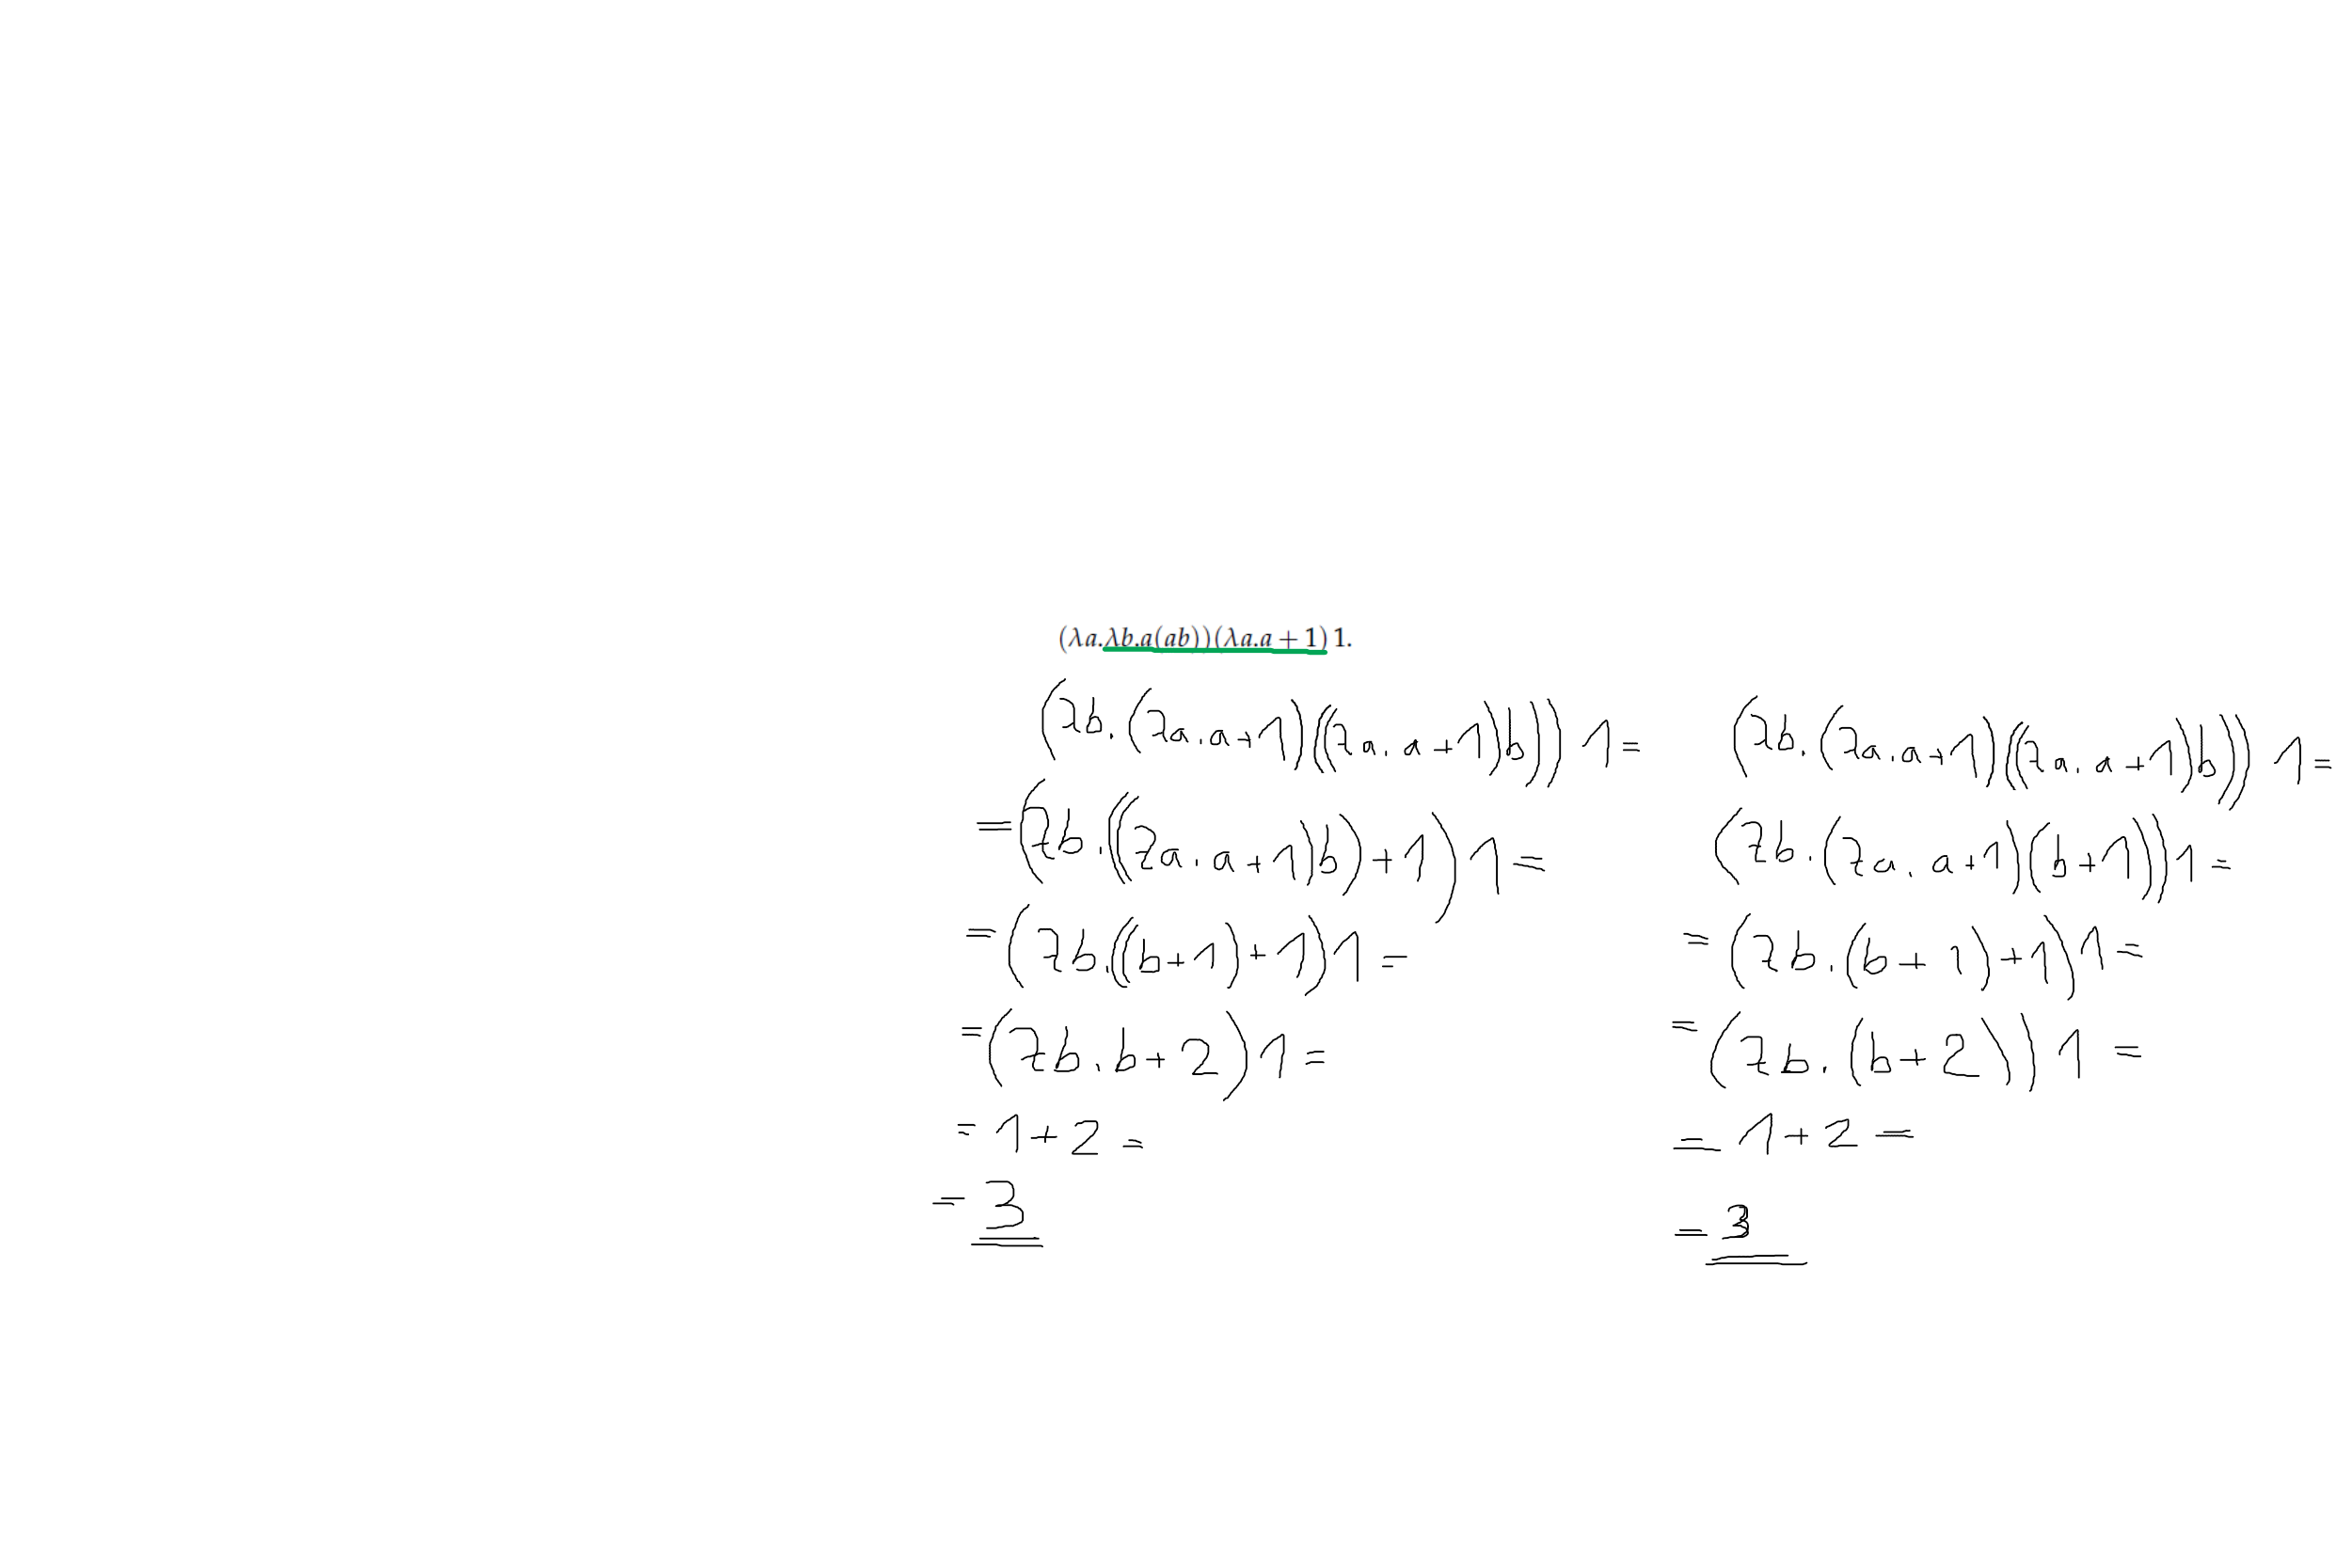 (λa.λb.a(ab))(λa.a + 1) 1.
(λb.(λa.a+1)((λa.a+1)b)) 1 =
= (λb.((λa.a+1)b)+1) 1 =
= (λb.((b+1)+1) 1 =
= (λb.b+2) 1 =
= 1+2 =
= 3
(λb.(λa.a+1)((λa.a+1)b)) 1 =
(λb.(λa.a+1)(b+1)) 1 =
= (λb.(b+1)+1) 1 =
= (λb.(b+2)) 1 =
= 1+2 =
= 3